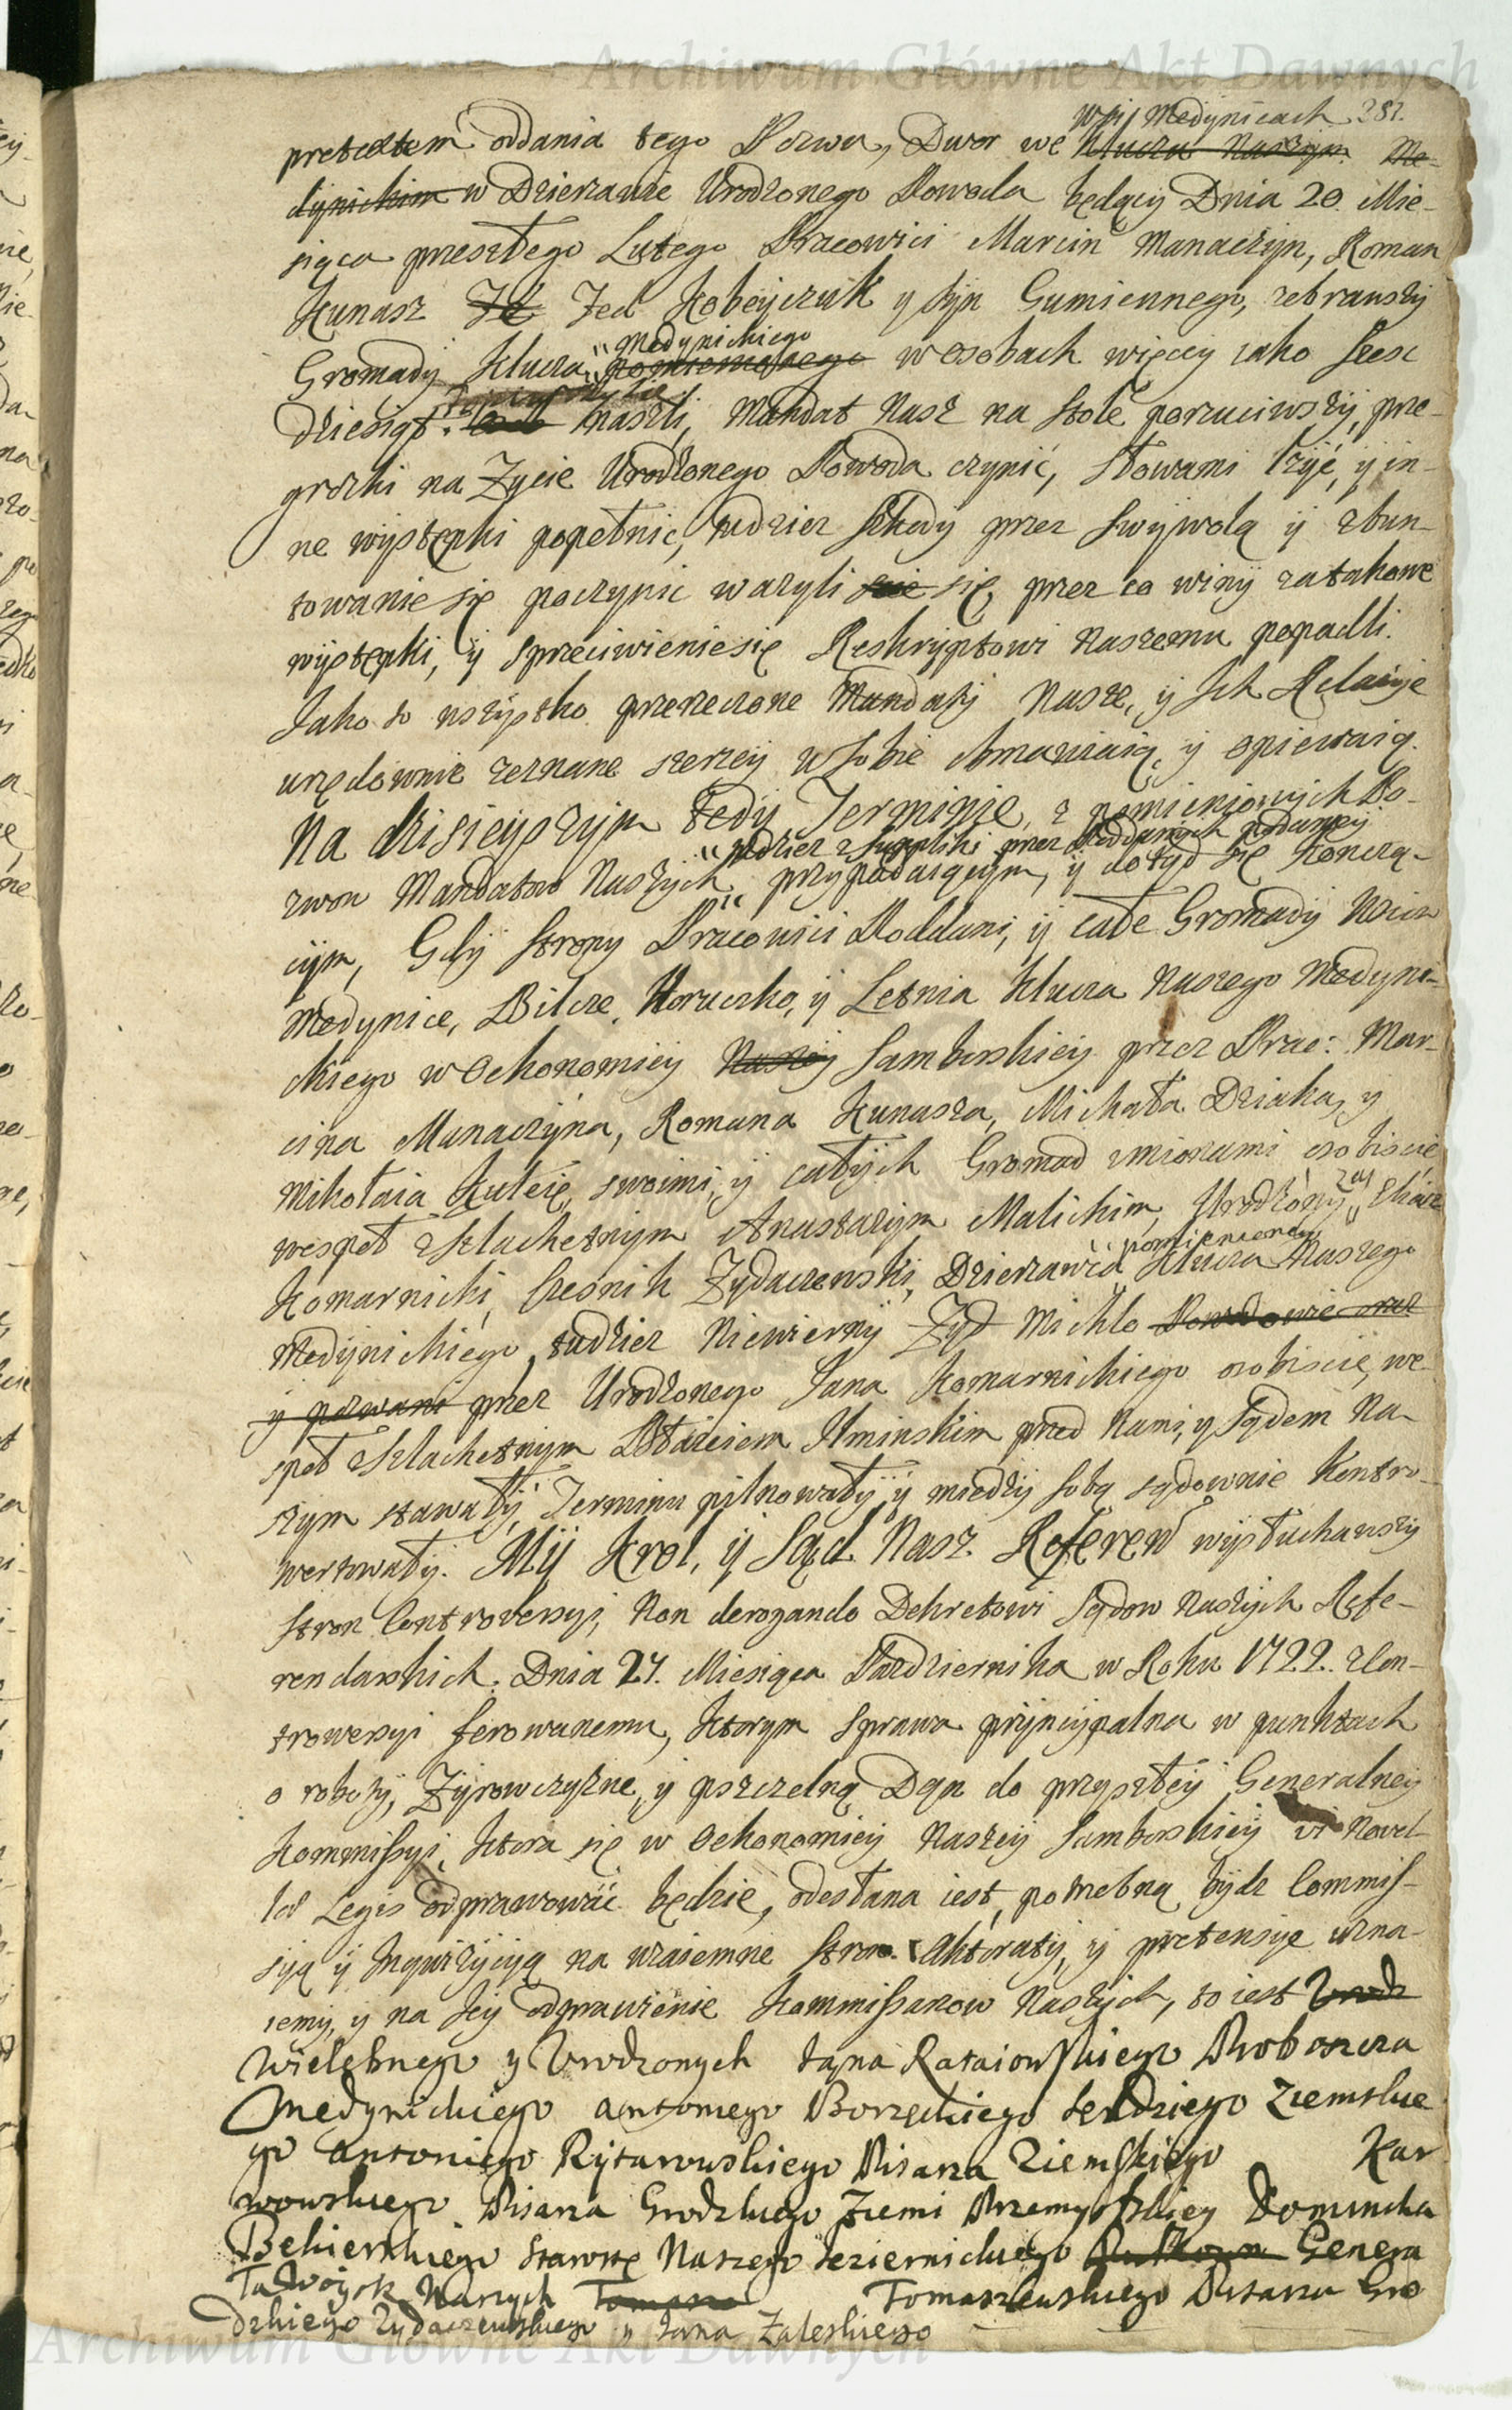 Archiwum Główne Akt Dawnych
wsi Medynicach 281.
pretextem oddania tego Pozwu, Dwor we Kluczu Naszym Me-
dynickim w Dzierzawie Urodzonego Powoda będący Dnia 20. Mie-
siąca przeszłego Lutego Pracowici Marcin Manaczyn, Roman
Kunasz Je Jed Kobeyczuk y syn Gumiennego, zebrawszy
Medynickiego
Gromady Klucza pomienionego w osobach więcey iako szesc
dziesiąt naszli, Mandat Nasz na stole porzuciwszy, prze-
grozki na Zycie Urodzonego Powoda czynić, słowami lżyć, y in-
ne występki popełnić, tudziez szkody przez swywolą y zbun-
towanie się poczynic wazyli sie się, przez co winy za takowe
występki, y sprzeciwienie się Reskryptowi Naszemu popadli.
Jako to wszystko przerzeczone Mandaty Nasze, y Ich Relacye
urzędownie zeznane szerzey w sobie obmawiaią, y opiewaią.
Na dzisieyszym tedy Terminie, z pomienionych Po-
tudziez z Suppliki przez Poddanych podaney
zwow Mandatow Naszych przypadaiącym, y dotąd się konczą-
cym, Gdy strony Pracowici Poddani, y całe Gromady Wsiow
Medynice, Bilcze, Horucko, y Letnia Klucza Naszego Medyni-
ckiego w Oekonomiey Naszey Samborskiey przez Prac: Mar-
cina Manaczyna, Romana Kunasza, Michała Dziaka, y
Mikołaia Kuleię, swoimi, y całych Gromad imionami osobiscie
wespoł z Szlachetnym Anastazym Malickim, Urodzony zaś Eliasz
pomienionego
Komarnicki, Czesnik Zydaczewski, Dzierzawca Klucza Naszego
Medynickiego, tudziez Niewierny Zyd Michlo Powodowie oraz
y pozwani przez Urodzonego Jana Komarnickiego osobiscie, we-
społ z Szlachetnym Błazeiem Ilminskim przed Nami, y Sądem Na-
szym stawały, Terminu pilnowały y między sobą sądownie kontro-
wertowały. My Krol, y Sąd Nasz Referen wysłuchawszy
stron Controversyi, Non derogando Dekretowi Sądow Naszych Refe-
rendarskich Dnia 27. Miesiąca Pazdziernika w Roku 1722. z Con-
trowersyi ferowanemu, ktorym sprawa pryncypalna w punktach
o roboty, Zyrowczyzne, y pszczelną Dań do przyszłey Generalney
Kommissyi, ktora się w Oekonomiey Naszey Samborskiey vi novel-
læ Legis odprawować będzie, odesłana iest, potrzebną bydz Commis-
syą y Inquizycyą na wzaiemne stron Aktoraty, y pretensye uzna-
iemy, y na Jey odprawienie Kommissarzow Naszych, to iest Urodz
Wielebnego y Urodzonych Jana Rataiowskiego Proboszcza
Medynickiego Antoniego Borzęckiego Sendziego Ziemskie
go Antoniego Rytarowskiego Pisarza Ziemskiego Kar
wowskiego Pisarza Grodzkiego Ziemi Przemyskiey Dominika
Bekierskiego Starostę Naszego Jeziernickiego Genera
ła Woysk Naszych Tomasza Tomaszewskiego Pisarza Gro
dzkiego Zydaczewskiego y Jana Zaleskiego
Archiwum Główne Akt Dawnych